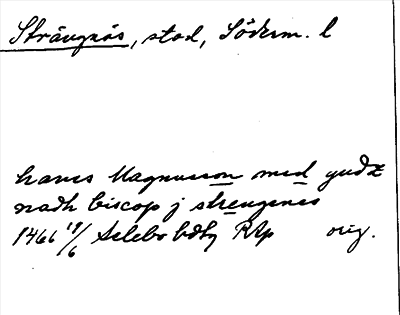 Strängnäs, stad, Söderm. l
hanes Magnusson med gudz
nadh biscop j strengenes
1466 19/6 Selebo hdbg RAp orig.